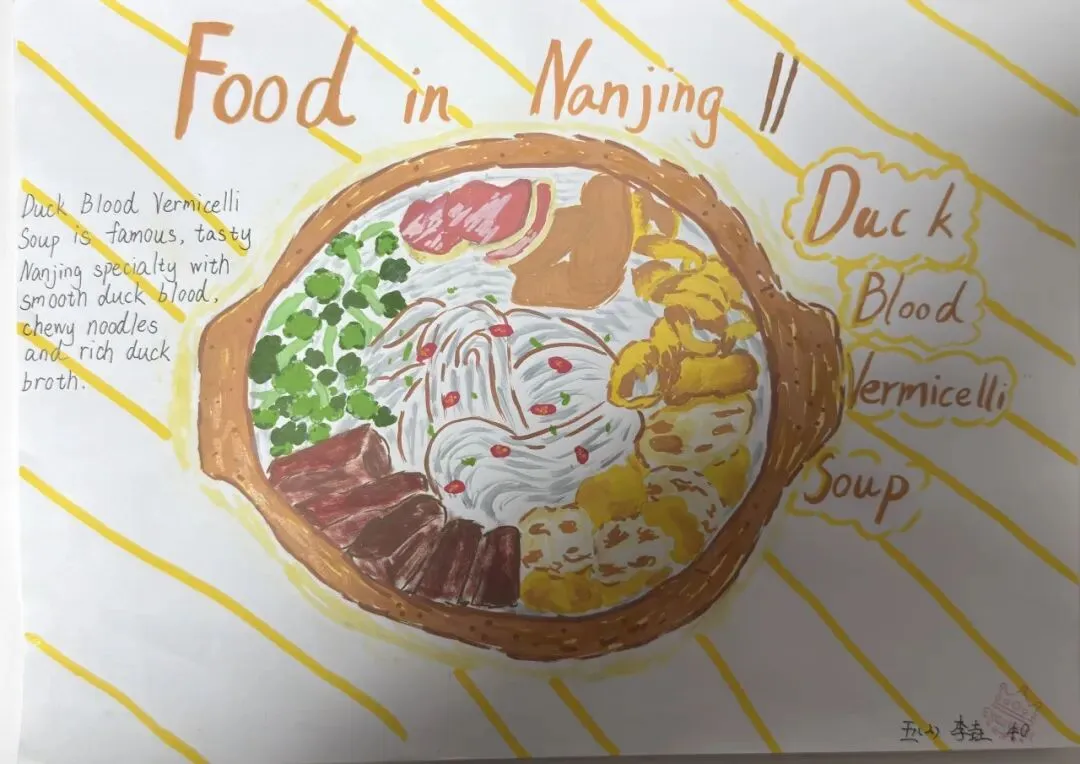 Food in Nanjing !!
Duck Blood Vermicelli
Soup is famous, tasty
Nanjing specialty with
smooth duck blood,
chewy noodles
and rich duck
broth.
Duck
Blood
Vermicelli
Soup
五(4) 40